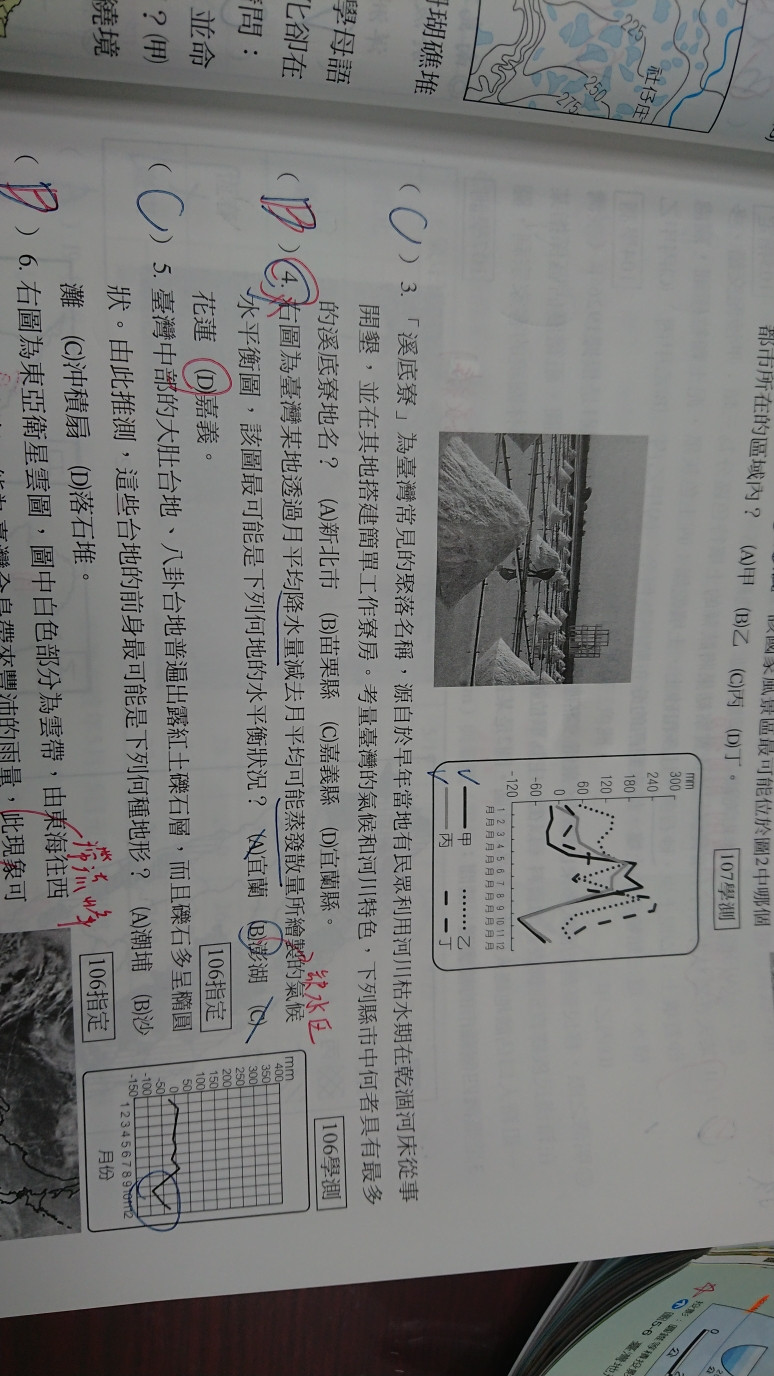 225
社仔庄
250
275
珊瑚礁堆
學母語
化卻在
問：
並命
？(甲)
繞境
都市所在的區域內？ (A)甲 (B)乙 (C)丙 (D)丁。
107學測
mm
300
240
180
120
60
0
-60
-120
1 2 3 4 5 6 7 8 9 10 11 12
月月月月月月月月月月月月
甲 乙
丙 丁
( C ) 3. 「溪底寮」為臺灣常見的聚落名稱，源自於早年當地有民眾利用河川枯水期在乾涸河床從事
開墾，並在其地搭建簡單工作寮房。考量臺灣的氣候和河川特色，下列縣市中何者具有最多
的溪底寮地名？ (A)新北市 (B)苗栗縣 (C)嘉義縣 (D)宜蘭縣。
106學測
( B ) 4. 右圖為臺灣某地透過月平均降水量減去月平均可能蒸發散量所繪製的氣候
水平衡圖，該圖最可能是下列何地的水平衡狀況？ (A)宜蘭 (B)澎湖 (C)
花蓮 (D)嘉義。
106指定
mm
400
350
300
250
200
150
100
50
0
-50
-100
-150
1 2 3 4 5 6 7 8 9 10 11 12
月份
( C ) 5. 臺灣中部的大肚台地、八卦台地普遍出露紅土礫石層，而且礫石多呈橢圓
狀。由此推測，這些台地的前身最可能是下列何種地形？ (A)潮埔 (B)沙
灘 (C)沖積扇 (D)落石堆。
106指定
( B ) 6. 右圖為東亞衛星雲圖，圖中白色部分為雲帶，由東海往西
帶來豐沛的雨量，此現象可
滯流峰